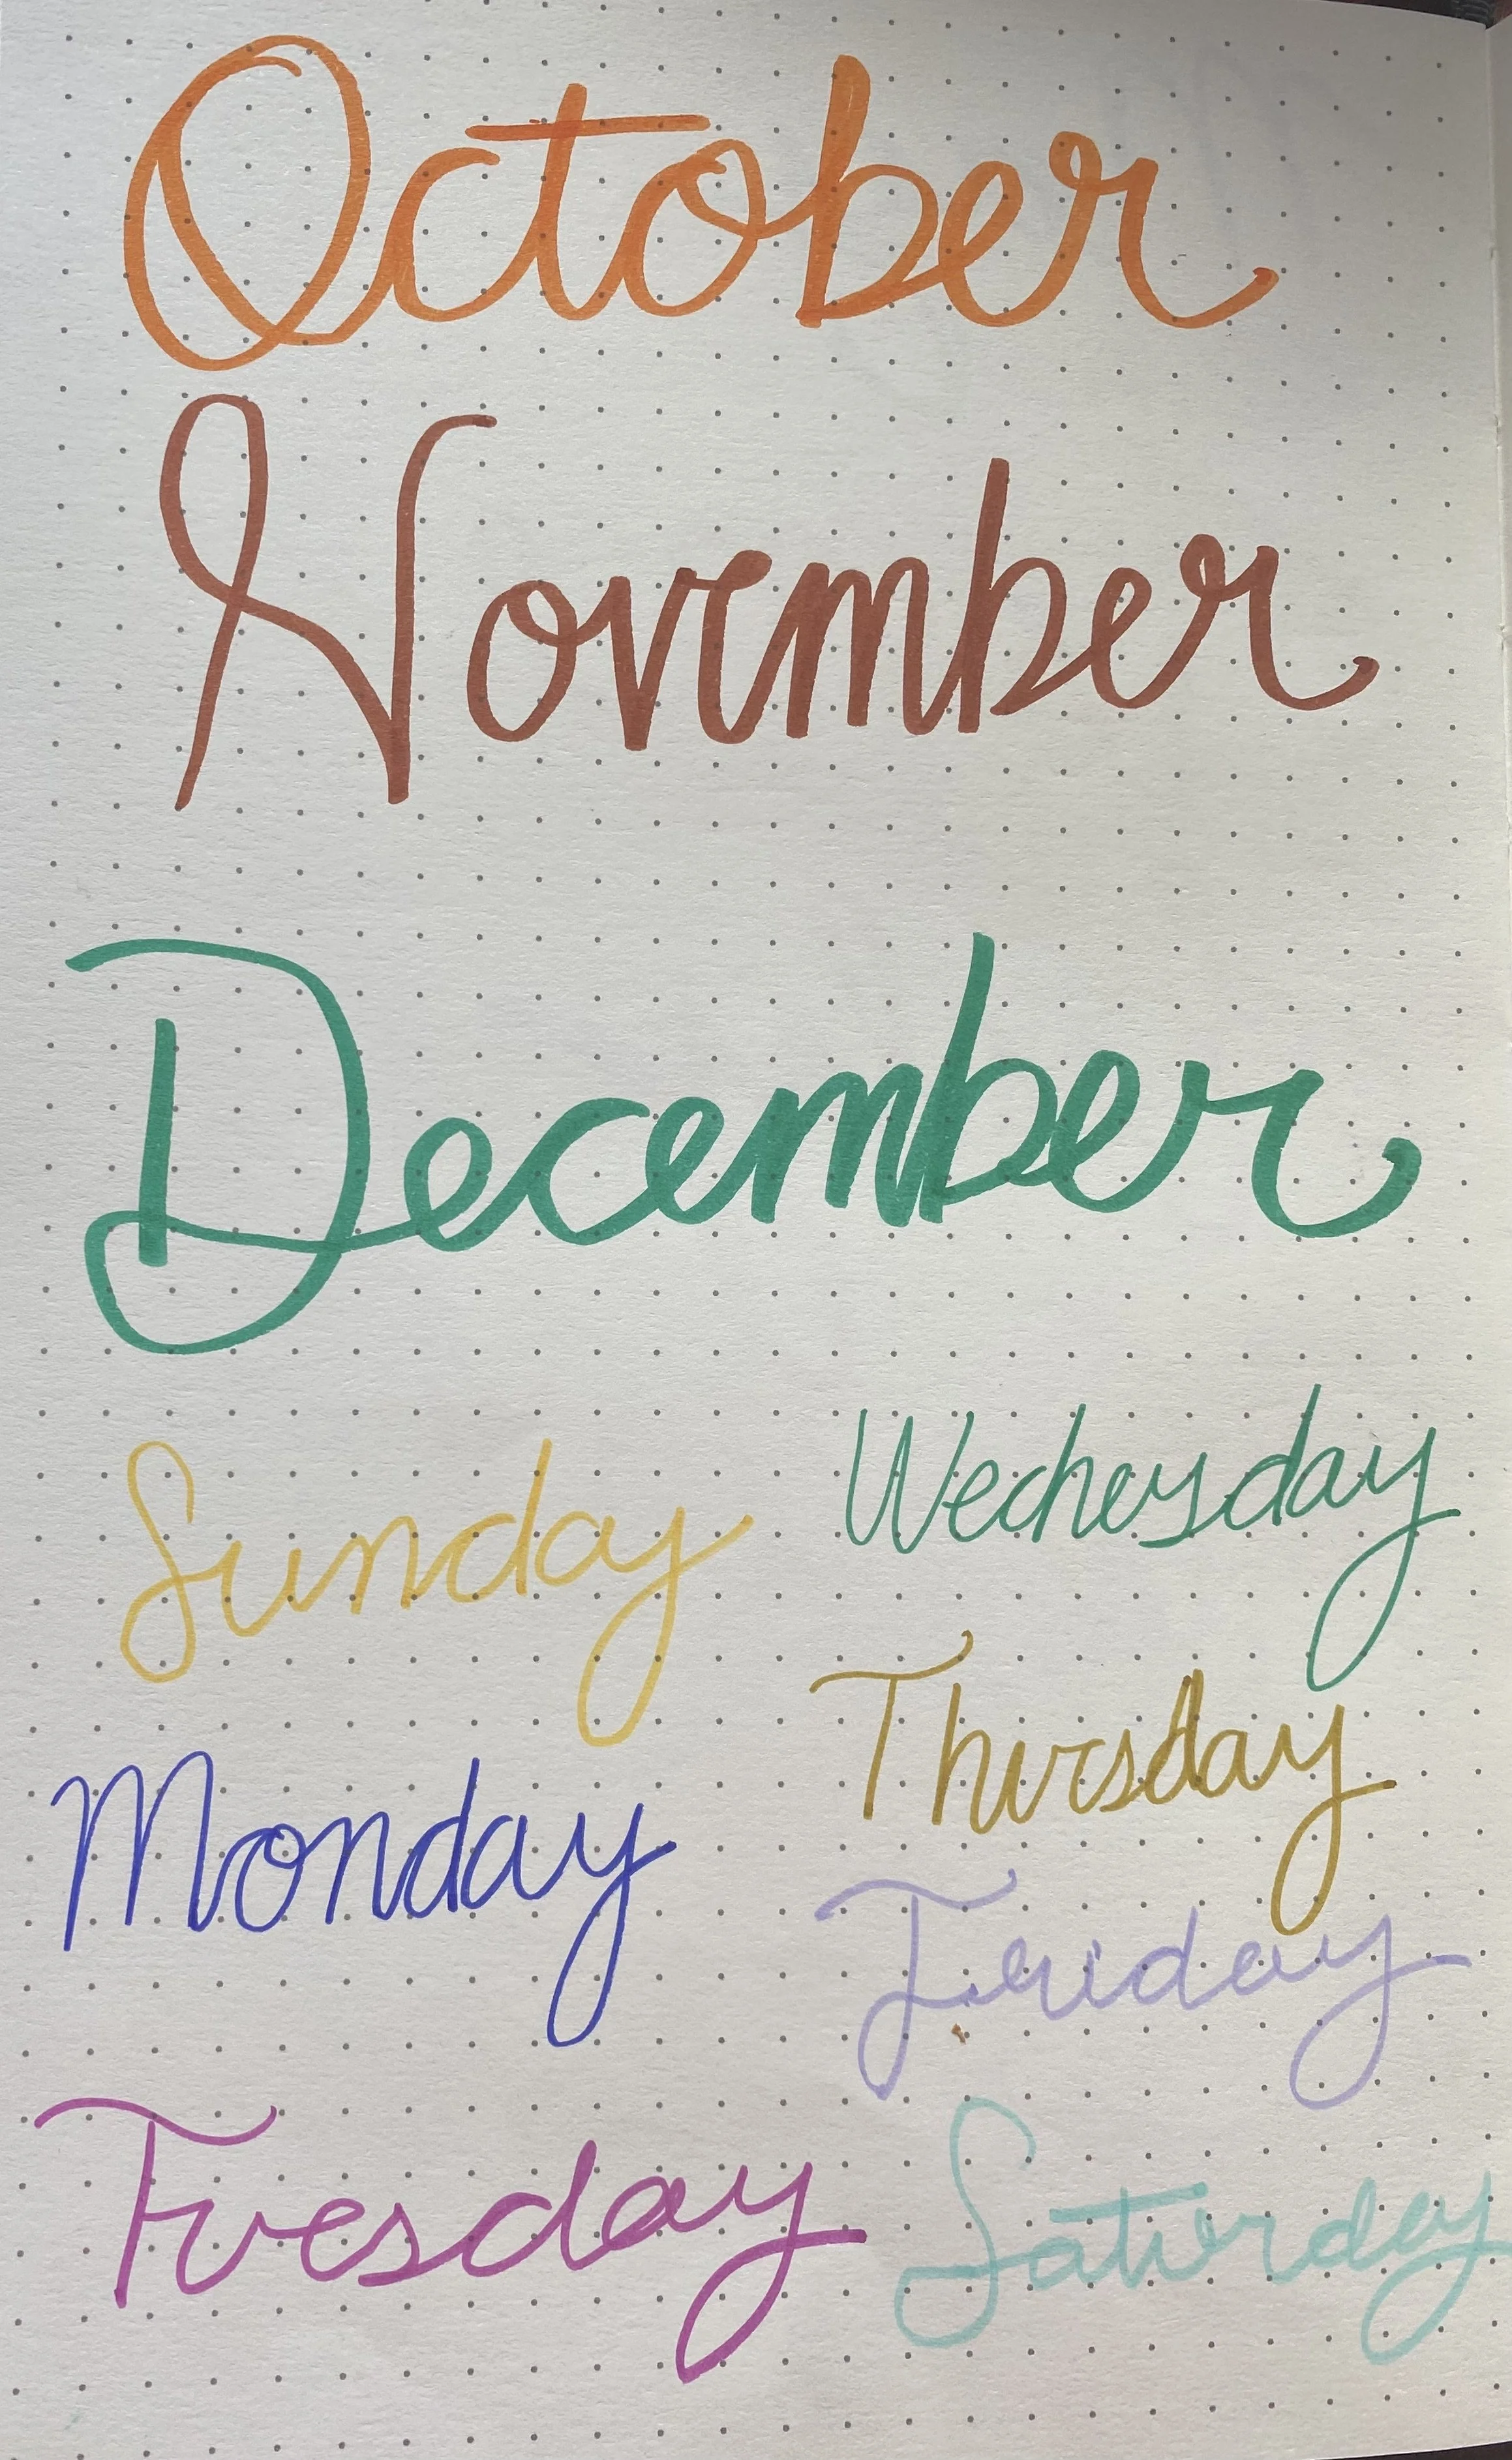 October
November
December
Sunday
Monday
Tuesday
Wednesday
Thursday
Friday
Saturday